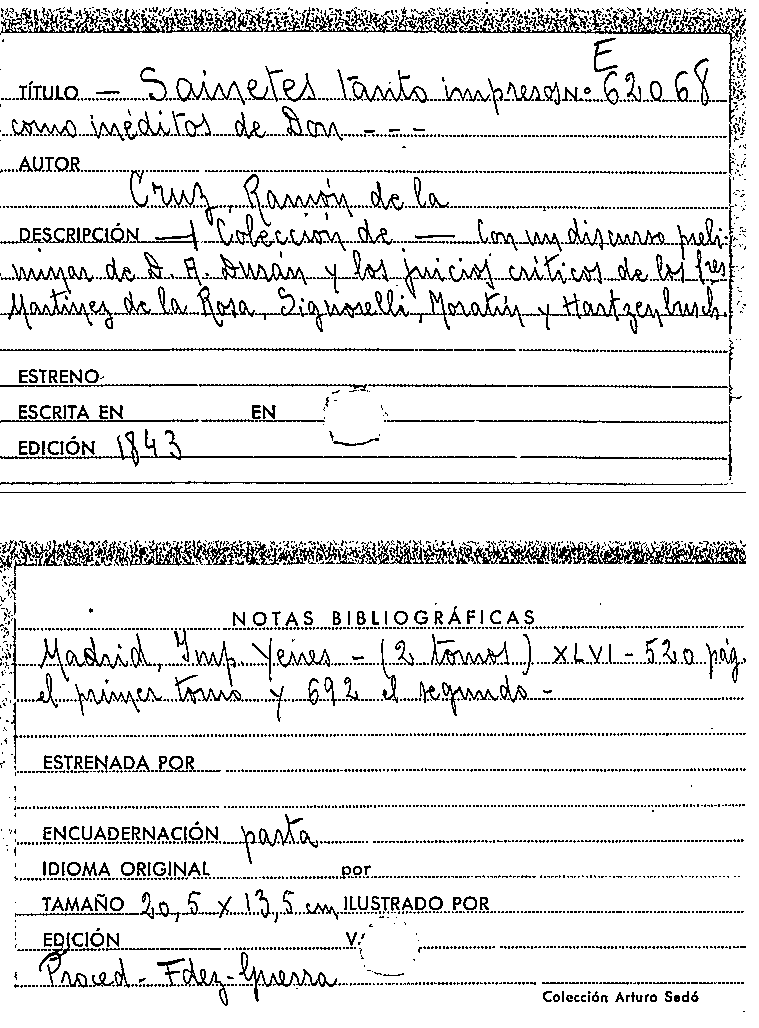 E
TÍTULO — Sainetes tanto impresos N.º 62068
como inéditos de Don - - -
AUTOR
Cruz, Ramón de la
DESCRIPCIÓN — Colección de — Con un discurso preli-
minar de D. A. Durán y los juicios críticos de los Sres
Martinez de la Rosa, Signorelli, Moratín y Hartzenbusch.
ESTRENO
ESCRITA EN EN
EDICIÓN 1843
NOTAS BIBLIOGRÁFICAS
Madrid, Imp. Yenes - (2 tomos) XLVI - 520 pág.
el primer tomo y 692 el segundo -
ESTRENADA POR
ENCUADERNACIÓN pasta
IDIOMA ORIGINAL por
TAMAÑO 20,5 X 13,5 cm ILUSTRADO POR
EDICIÓN V.
Proced- Fdez-Guerra
Colección Arturo Sedó